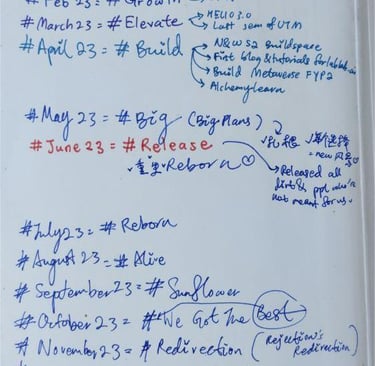 #Feb 23 = #Growth
#March 23 = #Elevate
HELIO 3.0
Last sem of UTM
#April 23 = #Build
N&W S2 Buildspace
First blog & tutorials for
Build Metaverse FYP2
Alchemy learn
#May 23 = #Big (Big Plans)
#June 23 = #Release
重生 Reborn ♡
Released all
ppl who're
not meant for us.
#July 23 = #Reborn
#August 23 = #Alive
#September 23 = #Sunflower
#October 23 = #We Got The Best
#November 23 = #Redirection (Rejection's
Redirection)